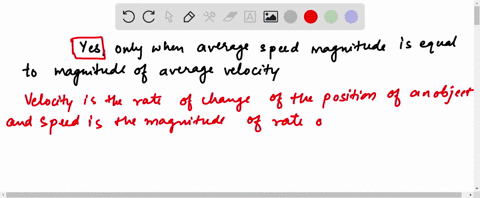 Yes only when average speed magnitude is equal
to magnitude of average velocity
Velocity is the rate of change of the position of an object
and speed is the magnitude of rate o